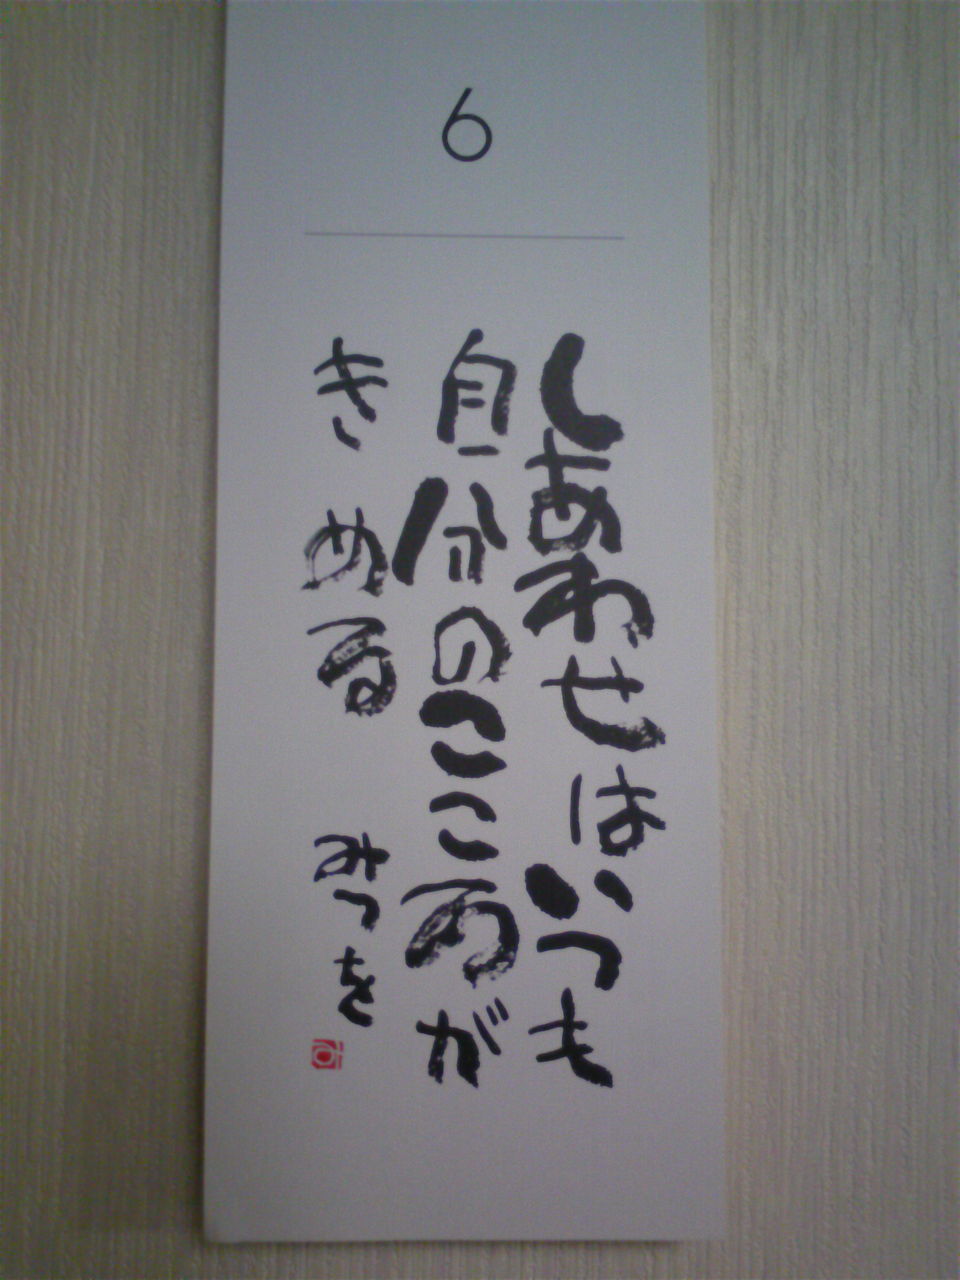 6
しあわせはいつも
自分のこころが
きめる
みつを